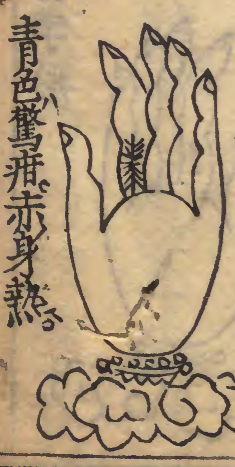 青色驚疳赤身熱